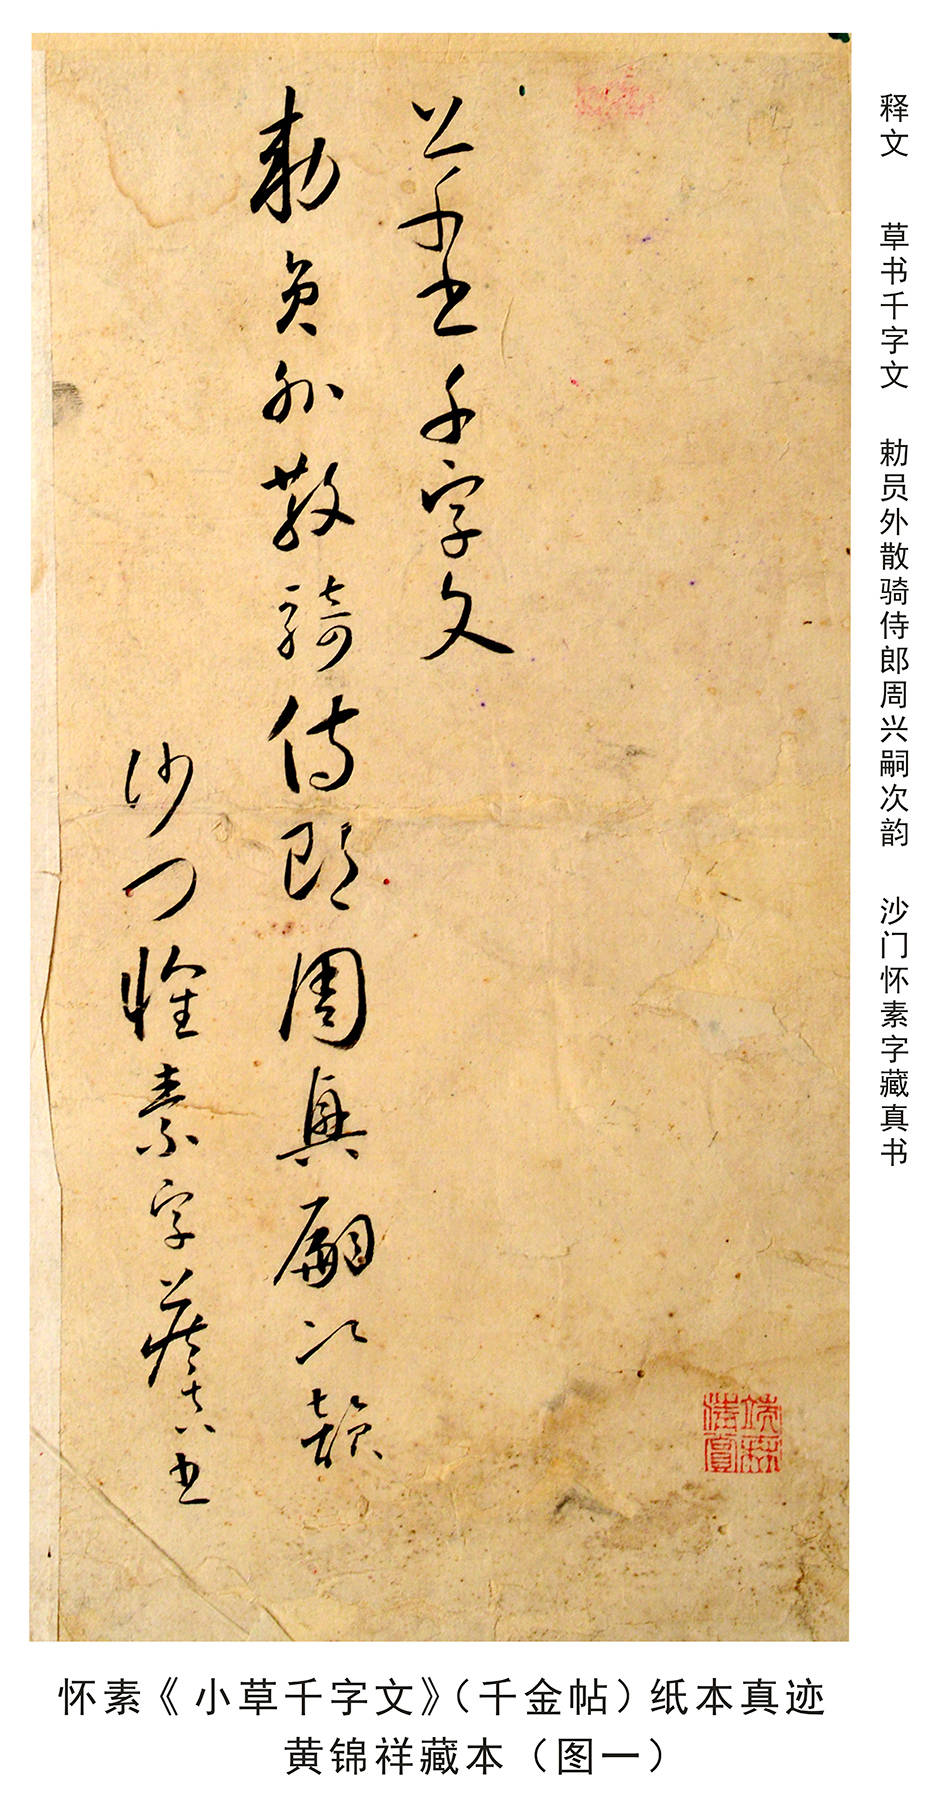 草书千字文
勅员外散騎侍郎周興嗣次韻
沙门懷素字藏真书
释文 草书千字文 勅员外散骑侍郎周兴嗣次韵 沙门怀素字藏真书
怀素《小草千字文》（千金帖）纸本真迹
黄锦祥藏本（图一）